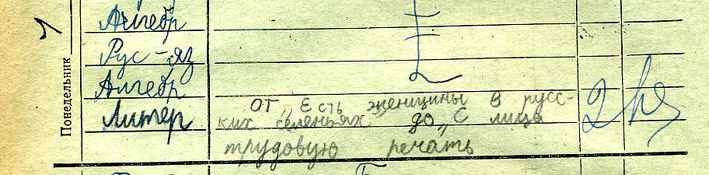 Понедельник
Алгебр
Рус-яз
Алгебр
Литер
От „Есть женщины в русс-
ких селеньях" до „С лица
трудовую печать
2